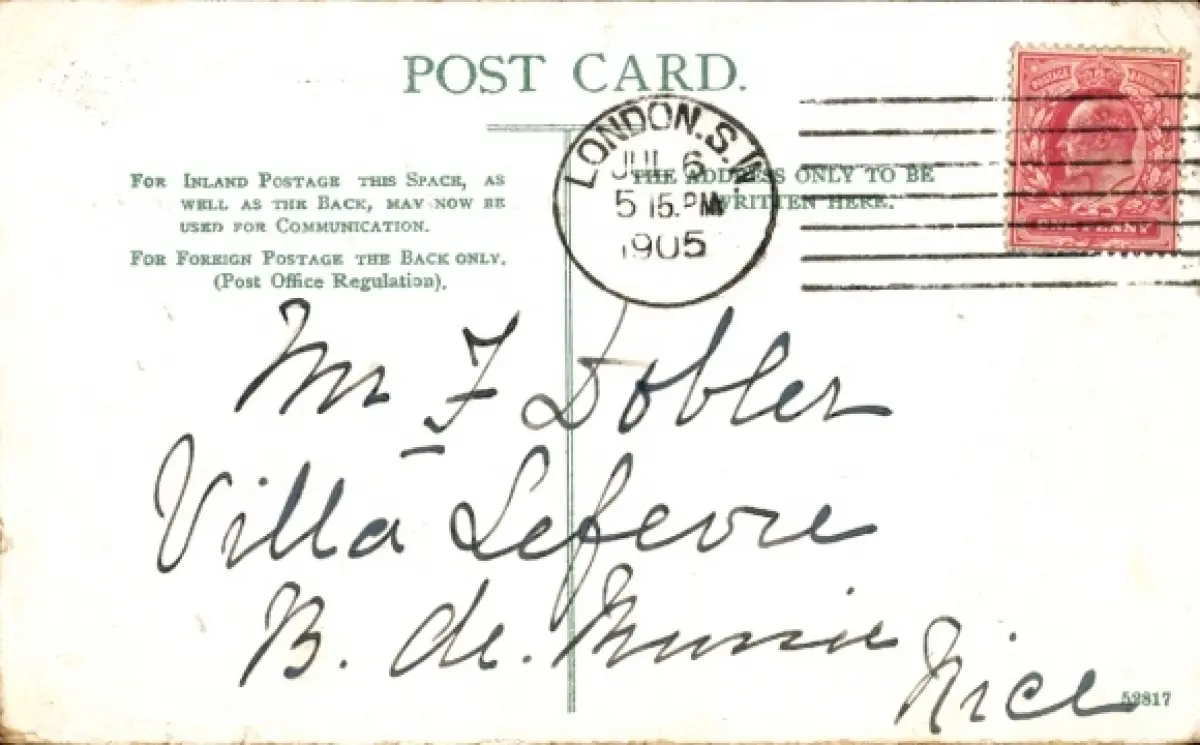 POST CARD.
FOR INLAND POSTAGE THIS SPACE, AS
WELL AS THE BACK, MAY NOW BE
USED FOR COMMUNICATION.
FOR FOREIGN POSTAGE THE BACK ONLY.
(Post Office Regulation).
THE ADDRESS ONLY TO BE
WRITTEN HERE.
LONDON. S.W.
JUL 6
5 15. PM
1905
POSTAGE
ONE PENNY
Mr F Dobler
Villa Lefevre
B. de.
Nice
52817